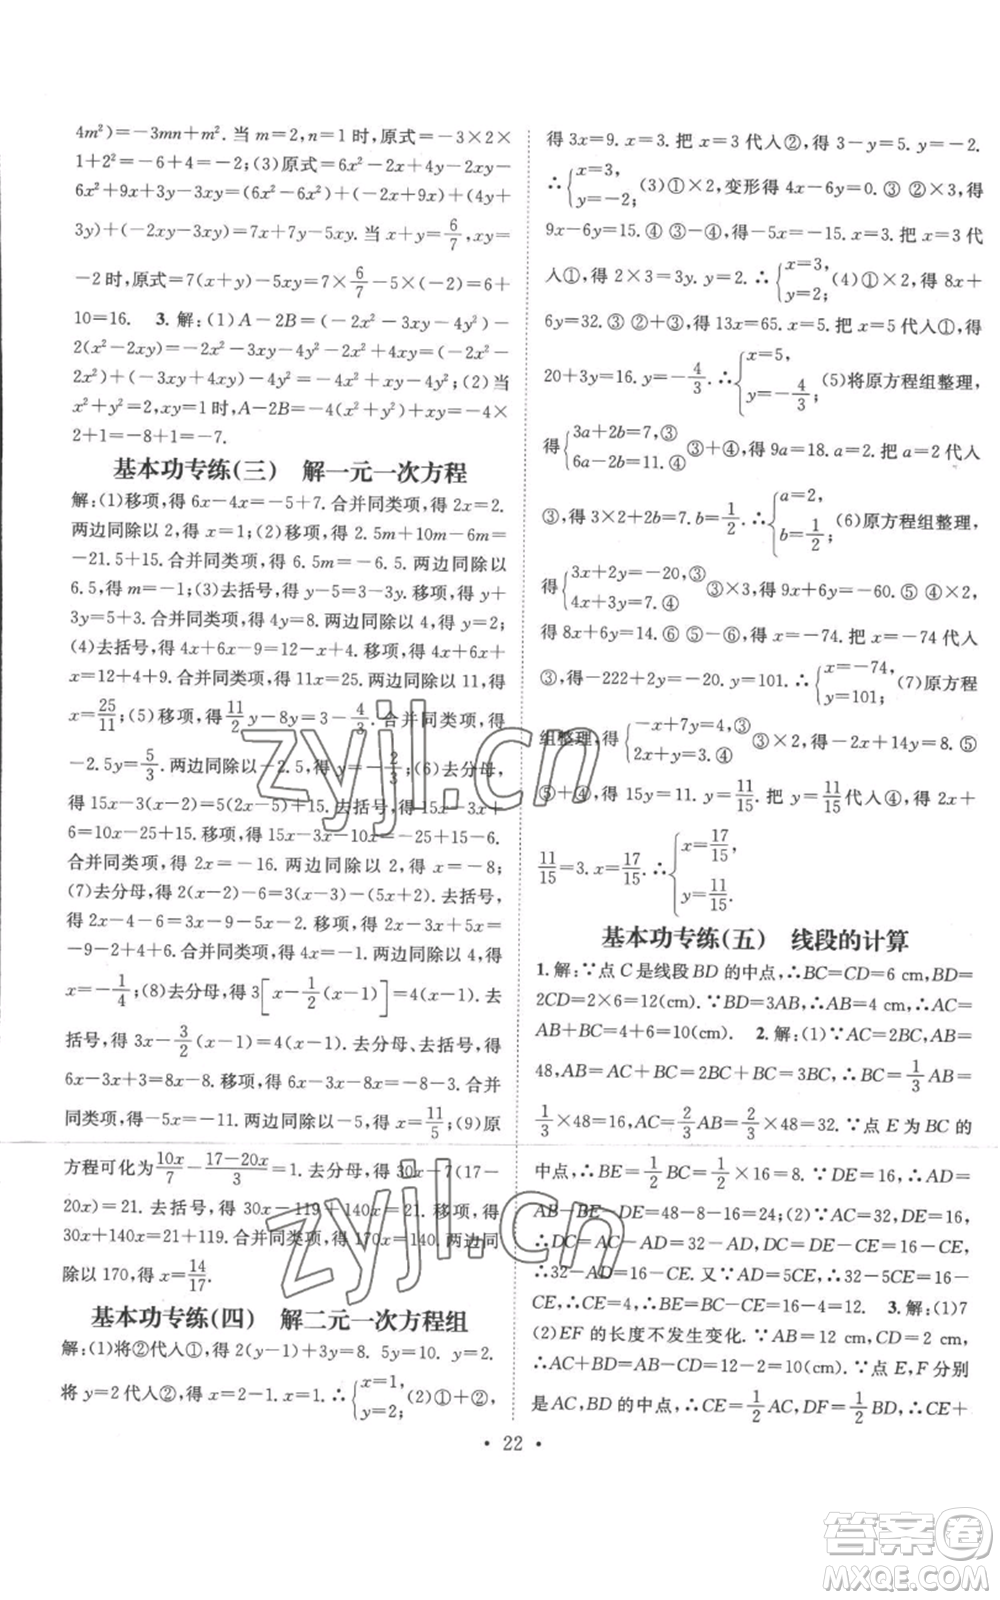 4m²)=-3mn+m². 当 m=2,n=1 时,原式=-3×2×
1+2²=-6+4=-2;(3)原式=6x²-2x+4y-2xy-
6x²+9x+3y-3xy=(6x²-6x²)+(-2x+9x)+(4y+
3y)+(-2xy-3xy)=7x+7y-5xy. 当 x+y=6/7,xy=
-2 时,原式=7(x+y)-5xy=7×6/7-5×(-2)=6+
10=16. 3. 解:(1)A-2B=(-2x²-4xy-4y²)-
2(x²-2xy)=-2x²-3xy-4y²-2x²+4xy=(-2x²-
2x²)+(-3xy+4xy)-4y²=-4x²+xy-4y²;(2)当
x²+y²=2,xy=1 时,A-2B=-4(x²+y²)+xy=-4×
2+1=-8+1=-7.
基本功专练(三) 解一元一次方程
解:(1)移项,得 6x-4x=-5+7. 合并同类项,得 2x=2.
两边同除以 2,得 x=1;(2)移项,得 2.5m+10m-6m=
-21.5+15. 合并同类项,得 6.5m=-6.5. 两边同除以
6.5,得 m=-1;(3)去括号,得 y-5=3-3y. 移项,得 y+
3y=3+5. 合并同类项,得 4y=8. 两边同除以 4,得 y=2;
(4)去括号,得 4x+6x-9=12-x+4. 移项,得 4x+6x+x
=12+4+9. 合并同类项,得 11x=25. 两边同除以 11,得
x=25/11;(5)移项,得 11/2y-8y=3-4/3. 合并同类项,得
-2.5y=5/3. 两边同除以-2.5,得 y=-2/3;(6)去分母,
得 15x-3(x-2)=5(2x-5)-3×15. 去括号,得 15x-3x+
6=10x-25+15. 移项,得 15x-3x-10x=-25+15-6.
合并同类项,得 2x=-16. 两边同除以 2,得 x=-8;
(7)去分母,得 2(x-2)-6=3(x-3)-(5x-2). 去括号,
得 2x-4-6=3x-9-5x+2. 移项,得 2x-3x+5x=
-9+2+4+6. 合并同类项,得 4x=3. 两边同除以 4,得
x=-1/4;(8)去分母,得 3[x-1/2(x-1)]=4(x-1). 去括号,
得 3x-3/2(x-1)=4x-4. 去分母、去括号,得
6x-3x+3=8x-8. 移项,得 6x-3x-8x=-8-3. 合并
同类项,得 -5x=-11. 两边同除以-5,得 x=11/5;(9)原
方程可化为10x/7-(17-20x)/3=1. 去分母,得 30x-7(17-
20x)=21. 去括号,得 30x-119+140x=21. 移项,得
30x+140x=21+119. 合并同类项,得 170x=140. 两边同
除以 170,得 x=14/17.
基本功专练(四) 解二元一次方程组
解:(1)将②代人①,得 2(y-1)+3y=8. 5y=10. y=2.
将 y=2 代人②,得 x=2-1. x=1. ∴{x=1, y=2;(2)①+②,
得 3x=9. x=3. 把 x=3 代人②,得 3-y=5. y=-2.
∴{x=3, y=-2;(3)①×2,变形得 4x-6y=0. ③ ②×3,得
9x-6y=15. ④ ④-③,得 5x=15. x=3. 把 x=3 代
人①,得 2×3-3y=0. y=2. ∴{x=3, y=2;(4)①×2,得 8x+
6y=32. ③ ②+③,得 13x=65. x=5. 把 x=5 代人①,得
20+3y=16. y=-4/3. ∴{x=5, y=-4/3;(5)将原方程组整理,
得{3a+2b=7,③ 6a-2b=11.④ ③+④,得 9a=18. a=2. 把 a=2 代人
③,得 3×2+2b=7. b=1/2. ∴{a=2, b=1/2;(6)原方程组整理,
得{3x+2y=-20,③ 4x+3y=7.④ ③×3,得 9x+6y=-60. ⑤ ④×2,
得 8x+6y=14. ⑥ ⑤-⑥,得 x=-74. 把 x=-74 代人
③,得-222+2y=-20. y=101. ∴{x=-74, y=101;(7)原方程
组整理,得{-x+7y=4,③ 2x+y=3.④ ③×2,得-2x+14y=8. ⑤
⑤+④,得 15y=11. y=11/15. 把 y=11/15代人④,得 2x+
11/15=3. x=17/15. ∴{x=17/15, y=11/15.
基本功专练(五) 线段的计算
1. 解:∵点 C 是线段 BD 的中点,∴BC=CD=6 cm,BD=
2CD=2×6=12(cm). ∵BD=3AB,∴AB=4 cm,∴AC=
AB+BC=4+6=10(cm). 2. 解:(1)∵AC=2BC,AB=
48,AB=AC+BC=2BC+BC=3BC,∴BC=1/3AB=
1/3×48=16,AC=2/3AB=2/3×48=32. ∵点 E 为 BC 的
中点,∴BE=1/2BC=1/2×16=8. ∵DE=16,∴AD=
AB-DE-BE=48-8-16=24;(2)∵AC=32,DE=16,
∴DC=AC-AD=32-AD=DE-CE=16-CE,
∴32-AD=16-CE. 又∵AD=5CE,∴32-5CE=16-CE,
∴CE=4,∴AD=5CE=20,BE=12. 3. 解:(1)7
(2)EF 的长度不发生变化. ∵AB=12 cm,CD=2 cm,
∴AC+BD=AB-CD=12-2=10(cm). ∵点 E,F 分别
是 AC,BD 的中点,∴CE=1/2AC,DF=1/2BD,∴CE+
• 22 •
zyjl.cn
zyjl.cn
答案圈
MXQE.COM